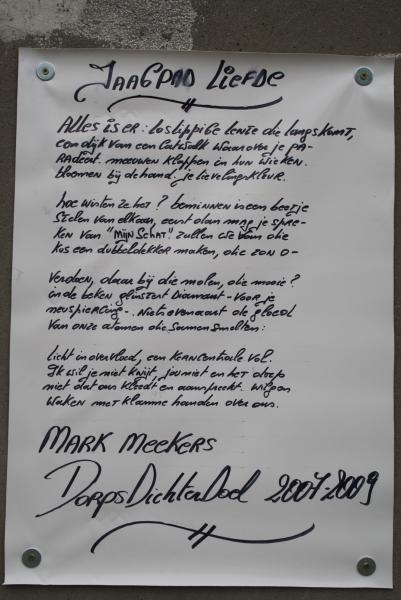 JAAGPAD LIEFDE
Alles is er: loslippige lente die langskomt,
een dijk van een catwalk waarover je pa-
radeert. meeuwen klappen in hun wieken.
bloemen bij de hand. je lievelingskleur.
hoe winden ze het? beminnen is een beetje
stelen van elkaar, eerst dan mag je spre-
ken van "Mijn schat". zullen we van die
kus een dubbeldekker maken, die zon o-
verdoen, daar bij die molen, die mooie?
in de beken glinstert diamant - voor je
neuspiercing -. Niets evenaart de gloed
van onze atomen die samensmelten:
licht in overvloed, een kerncentrale vol.
Ik wil je niet kwijt, jou niet en het dorp
niet dat ons kleedt en aanspreekt. wilgen
waken met klamme handen over ons.
MARK MEEKERS
DorpsDichterDoel 2007-2009